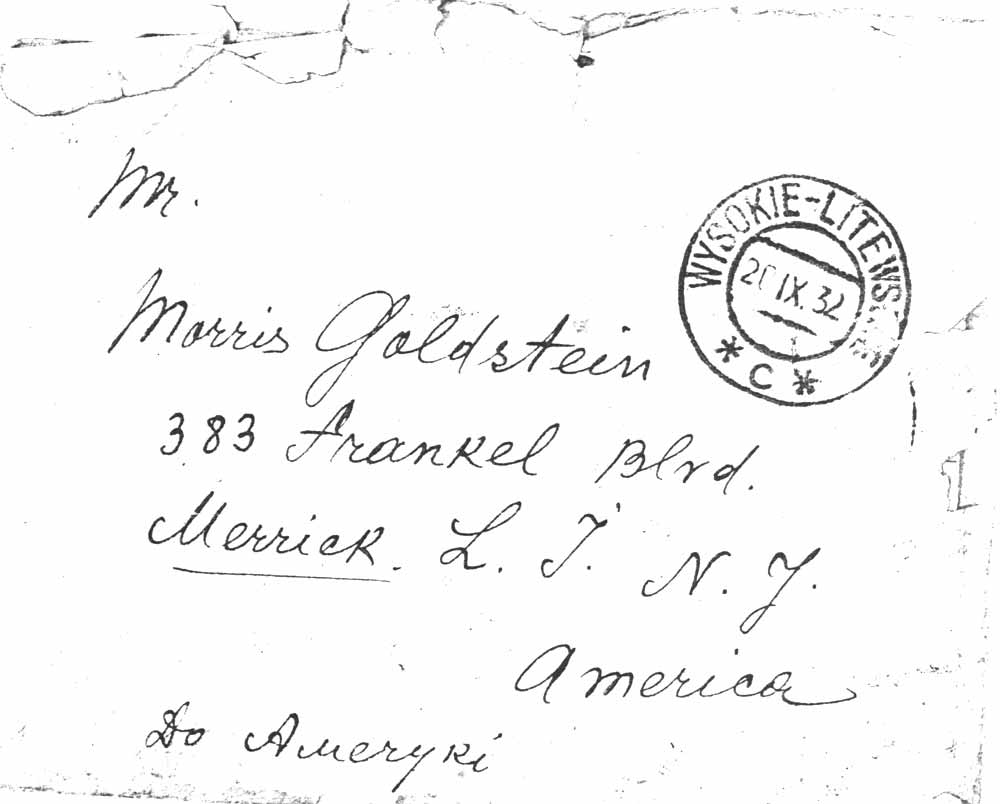 Mr.
WYSOKIE-LITEWSKIE
IX.32
* C *
Morris Goldstein
383 Frankel Blvd.
Merrick. L. I. N. Y.
America
Do Ameryki